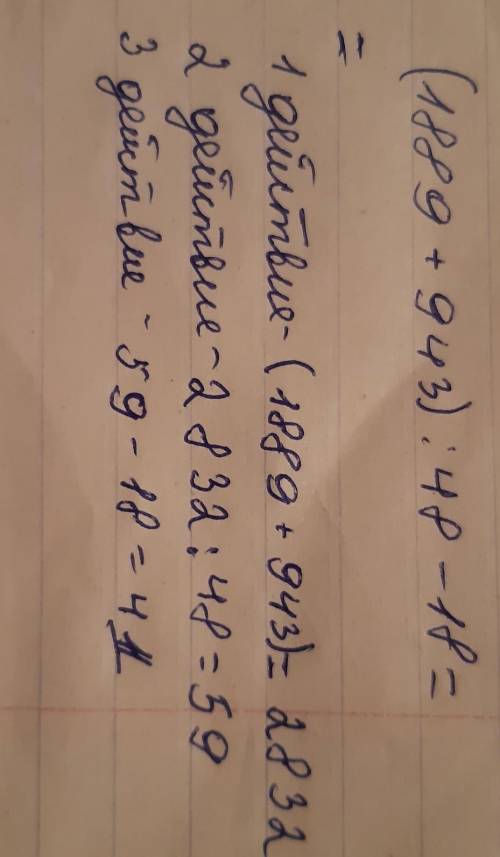 (1889 + 943) : 48 - 18 =
=
1 действие - (1889 + 943) = 2832
2 действие - 2832 : 48 = 59
3 действие - 59 - 18 = 41